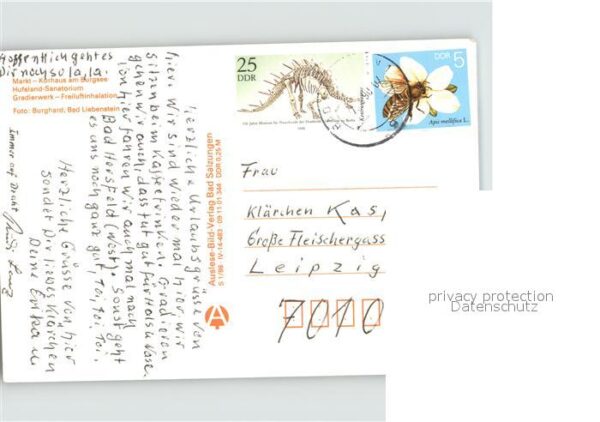 Hoffentlich geht es
Dir noch so la, la.
Markt - Kurhaus am Burgsee
Hufeland-Sanatorium
Gradierwerk - Freiluftinhalation
Foto: Burghard, Bad Liebenstein
Herzliche Urlaubsgrüsse von
hier. Wir sind wieder mal hier. Wir
sitzen beim Kaffeetrinken. Gradieren
gehen wir auch, dass tut gut für Hals u. Nase.
Von hier fahren wir auch mal nach
Bad Hersfeld (West). Sonst geht
es uns noch ganz gut, Toi, toi, Toi,
Herzliche Grüsse von hier
sendet Dir liebes Klärchen
Deine
Immer auf Draht
Auslese-Bild-Verlag Bad Salzungen
S 1/96 IV-14-483 09 11 01 344 DDR 0,25 M
A
25
DDR
DDR 5
Apis mellifica L.
Frau
Klärchen Kas,
Große Fleischergass
Leipzig
7010
privacy protection
Datenschutz